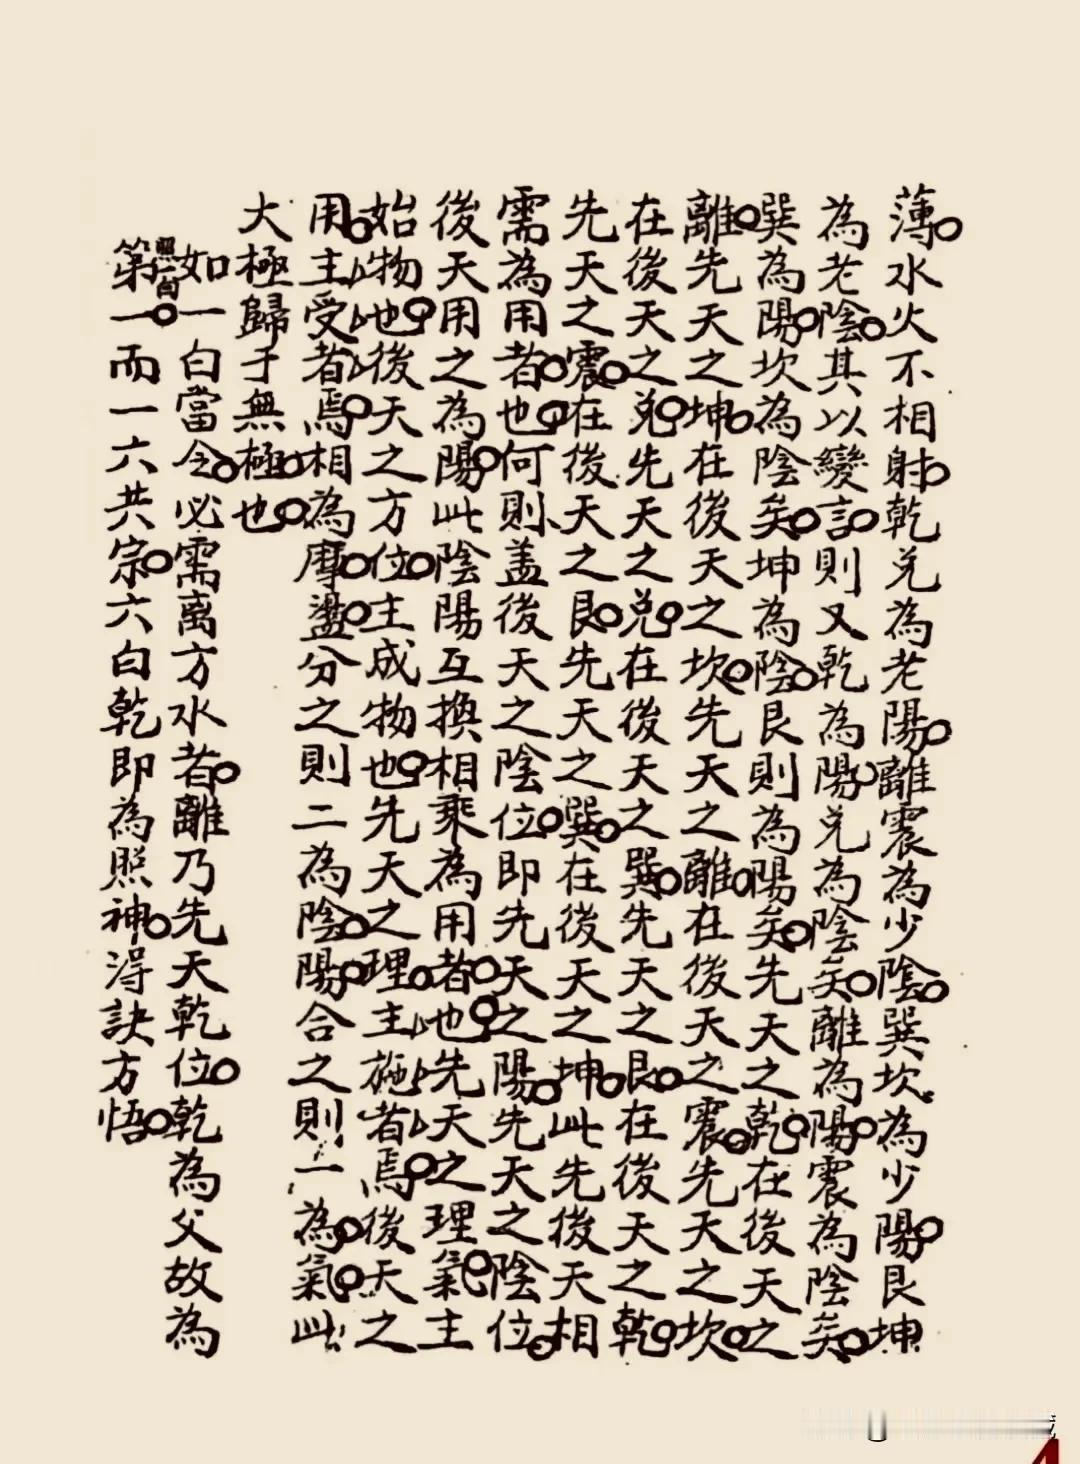 薄。水火不相射。乾兌為老陽。離震為少陰。巽坎為少陽。艮坤
為老陰。其以變言。則又乾為陽。兌為陰矣。離為陽。震為陰矣。
巽為陽。坎為陰矣。坤為陰。艮則為陽矣。先天之乾。在後天之
離。先天之坤。在後天之坎。先天之離。在後天之震。先天之坎。
在後天之兌。先天之兌。在後天之巽。先天之艮。在後天之乾。
先天之震。在後天之艮。先天之巽。在後天之坤。此先後天相
需為用者也。何則、盖後天之陰位。即先天之陽。先天之陰位。
後天用之為陽。此陰陽互換相乘為用者也。先天之理氣。主
始物也。後天之方位。主成物也。先天之理。主施者焉。後天之
用。主受者焉。相為摩。盪。分之則二為陰。陽。合之則一為氣。此
大極歸于無極。也。
如一白當令。必需离方水者。離乃先天乾位。乾為父故為
照首。
第一而一六共宗。六白乾即為照神。淂訣方悟。